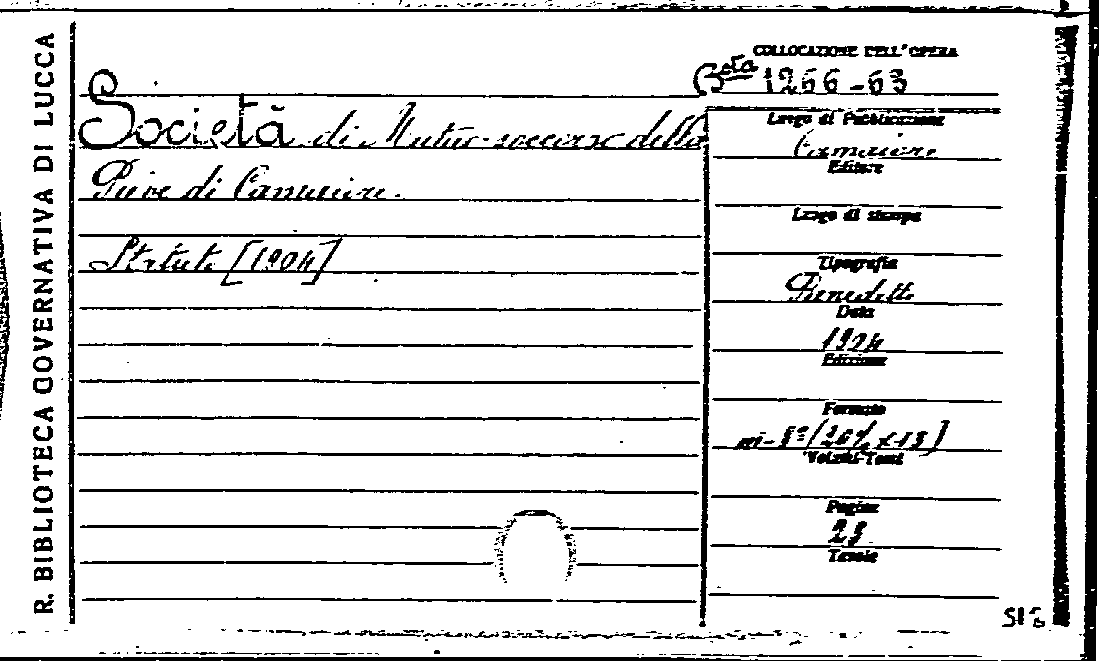 R. BIBLIOTECA GOVERNATIVA DI LUCCA
COLLOCAZIONE DELL'OPERA
Bsta 1266-63
Società di Mutuo-soccorso della
Pieve di Camaiore.
Statuto [1904]
Luogo di Pubblicazione
Camaiore
Editore
Luogo di stampa
Tipografia
Benedetti
Data
1904
Edizione
Formato
in-8º
Volumi-Tomi
Pagine
23
Tavole